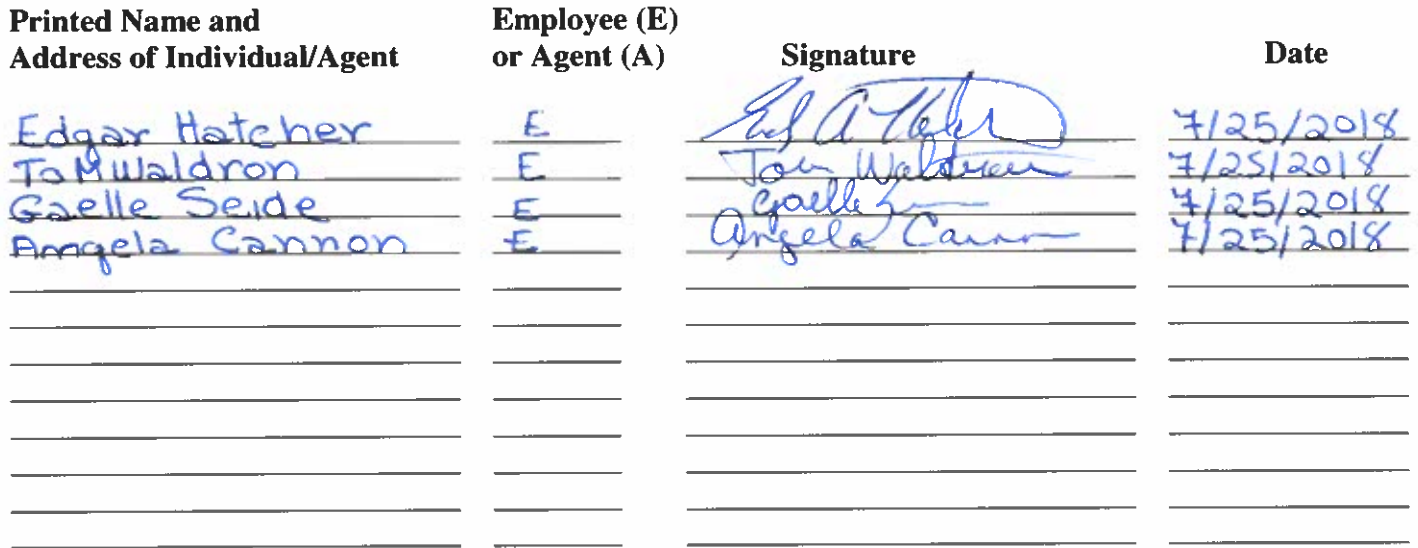 Printed Name and Employee (E)
Address of Individual/Agent or Agent (A) Signature Date
Edgar Hatcher E Ed A 7/25/2018
Tom Waldron E Tom Waldron 7/25/2018
Gaelle Seide E Gaelle 7/25/2018
Angela Cannon E Angela Cannon 7/25/2018